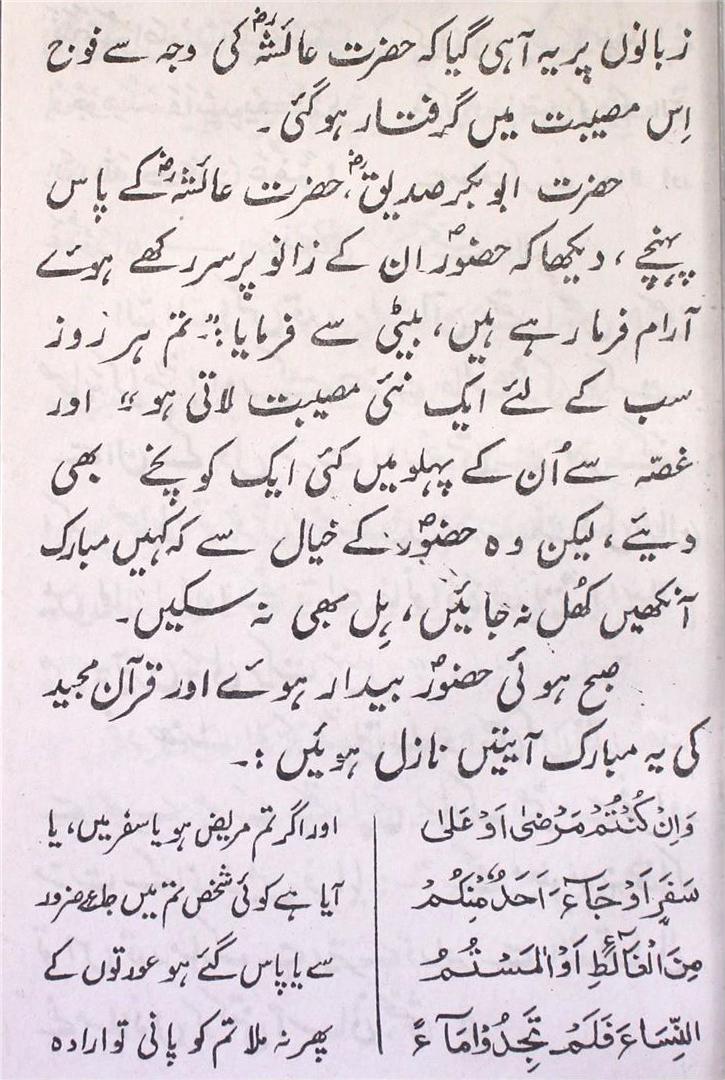 زبانوں پر یہ آہی گیا کہ حضرت عائشہؓ کی وجہ سے فوج
اِس مصیبت میں گرفتار ہوگئی۔
حضرت ابوبکر صدیقؓ، حضرت عائشہؓ کے پاس
پہنچے، دیکھا کہ حضورؐ ان کے زانو پر سر رکھے ہوئے
آرام فرما رہے ہیں، بیٹی سے فرمایا: "تم ہر روز
سب کے لئے ایک نئی مصیبت لاتی ہو" اور
غصّہ سے اُن کے پہلو میں کئی ایک کوچے بھی
دیئے، لیکن وہ حضورؐ کے خیال سے کہ کہیں مبارک
آنکھیں کھُل نہ جائیں، ہِل بھی نہ سکیں۔
صبح ہوئی حضورؐ بیدار ہوئے اور قرآن مجید
کی یہ مبارک آیتیں نازل ہوئیں :۔
وَاِنْ كُنْتُمْ مَرْضىٰ اَوْ عَلىٰ
سَفَرٍ اَوْ جَآءَ اَحَدٌ مِّنْكُمْ
مِنَ الْغَآئِطِ اَوْ لٰمَسْتُمُ
النِّسَاءَ فَلَمْ تَجِدُوْا مَآءً
اور اگر تم مریض ہو یا سفر میں، یا
آیا ہے کوئی شخص تم میں جاءِ ضرور
سے یا پاس گئے ہو عورتوں کے
پھر نہ ملا تم کو پانی تو ارادہ